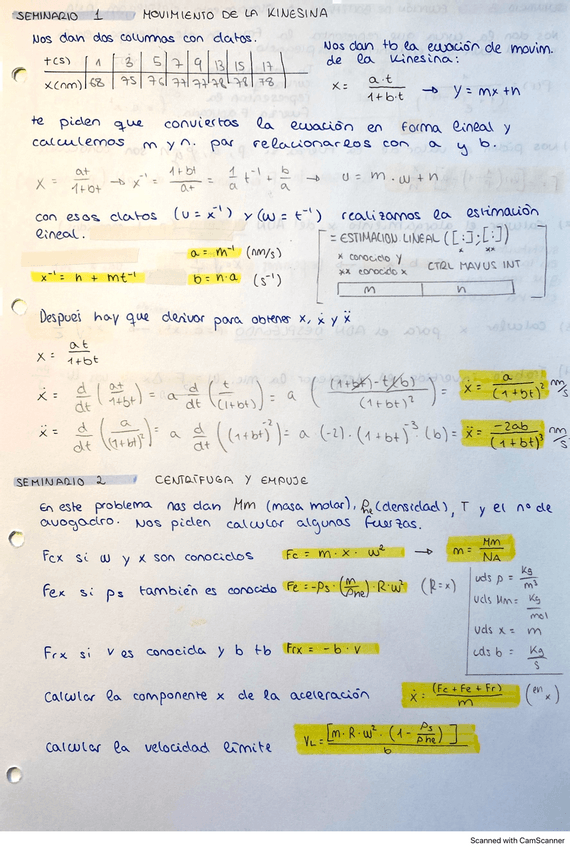 SEMINARIO 1 MOVIMIENTO DE LA KINESINA
Nos dan dos columnas con datos.
t(s) | 1 | 3 | 5 | 7 | 9 | 13 | 15 | 17
x(nm) | 68 | 75 | 76 | 77 | 77 | 78 | 78 | 78
Nos dan tb la ecuación de movim.
de la kinesina:
x = a·t / 1+b·t → y = mx+n
te piden que conviertas la ecuación en forma lineal y
calculemos m y n. par relacionarlos con a y b.
x = at / 1+bt → x⁻¹ = 1+bt / at = 1/a t⁻¹ + b/a → u = m·w+n
con esos datos (u = x⁻¹) y (w = t⁻¹) realizamos la estimación
lineal.
a = m⁻¹ (nm/s)
x⁻¹ = n + mt⁻¹ b = n·a (s⁻¹)
= ESTIMACION LINEAL ([:];[:])
* **
* conocido y
** conocido x CTRL MAYUS INT
m | n
Despues hay que derivar para obtener x, ẋ y ẍ
x = at / 1+bt
ẋ = d/dt (at / 1+bt) = a d/dt (t / (1+bt)) = a ((1+bt)-t(b) / (1+bt)²) = ẋ = a / (1+bt)² nm/s
ẍ = d/dt (a / (1+bt)²) = a d/dt ((1+bt)⁻²) = a (-2)·(1+bt)⁻³ (b) = ẍ = -2ab / (1+bt)³ nm/s
SEMINARIO 2 CENTRÍFUGA Y EMPUJE
En este problema nos dan Mm (masa molar), ρhe (densidad), T y el nº de
avogadro. Nos piden calcular algunas fuerzas.
Fcx si w y x son conocidos Fc = m·x·w² → m = Mm / NA
Fex si ρs también es conocido Fe = -ρs·(m/ρhe)·R·w² (R=x)
uds ρ = Kg/m³
uds Mm = Kg/mol
uds x = m
uds b = Kg/s
Frx si v es conocida y b tb Frx = -b·v
Calcular la componente x de la aceleración ẍ = (Fc+Fe+Fr) / m (en x)
Calcular la velocidad límite VL = [m·R·w²·(1 - ρs/ρhe)] / b
Scanned with CamScanner